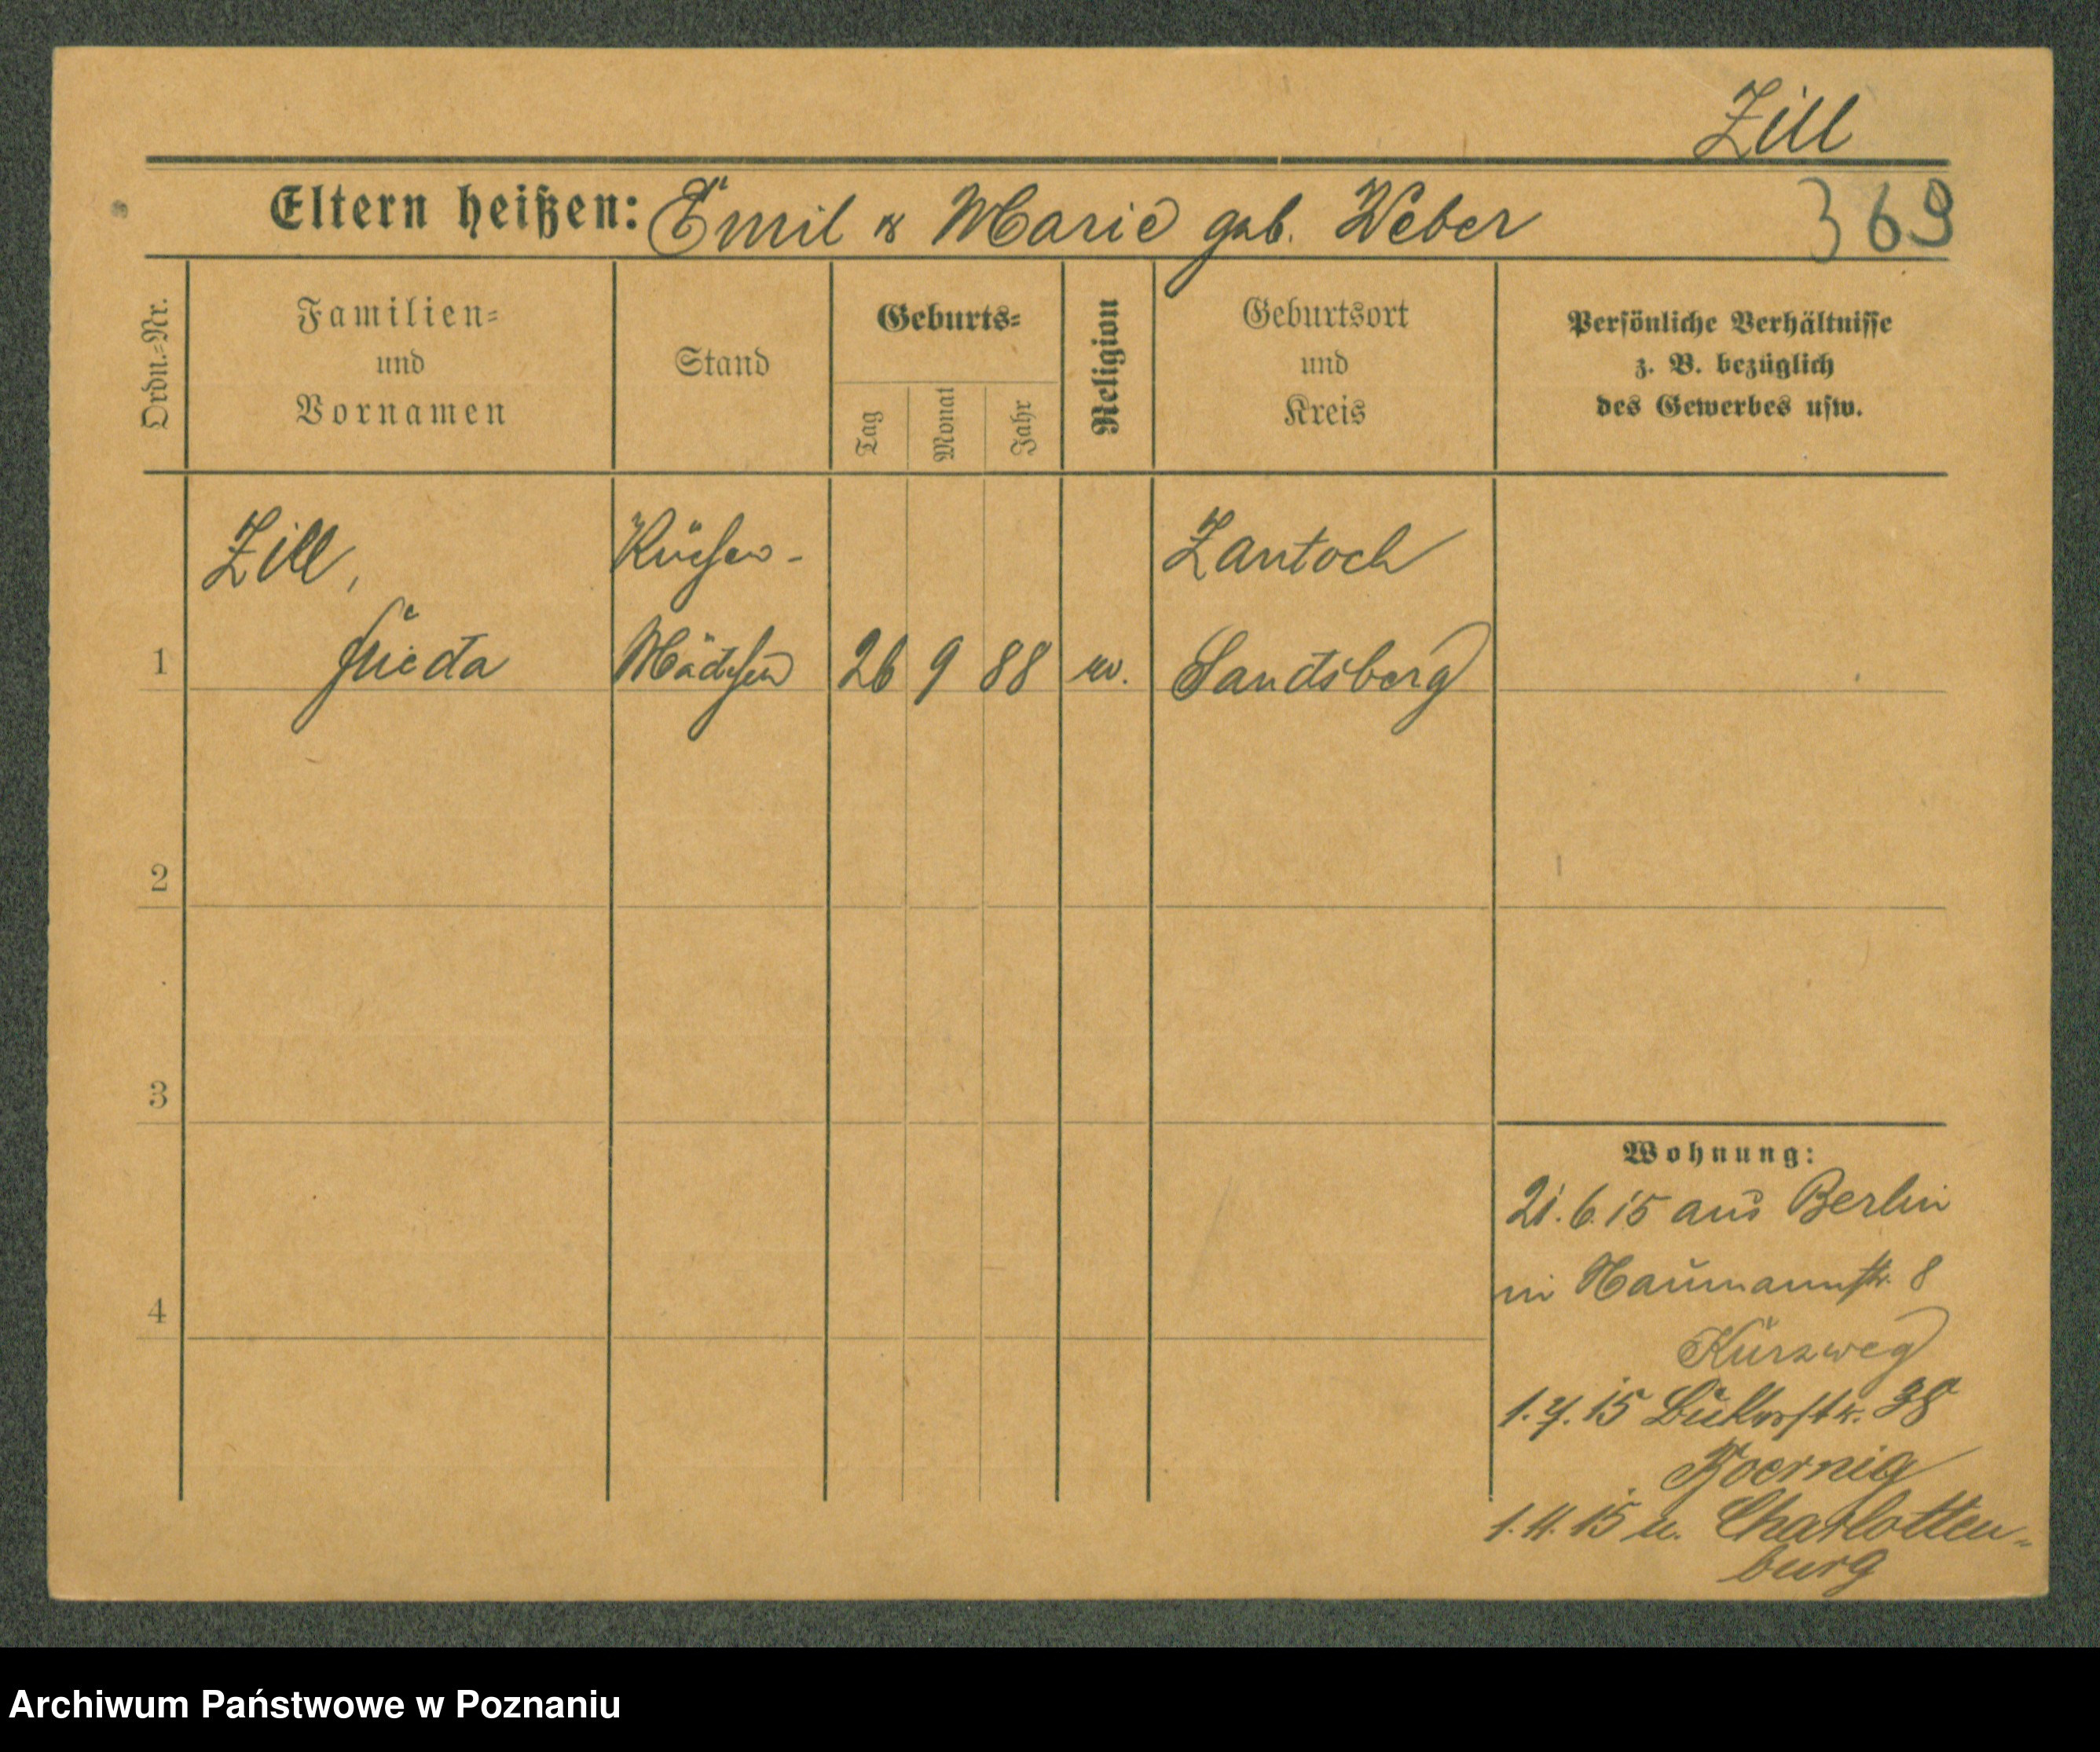 Zill
Eltern heißen: Emil & Marie geb. Weber 369
Ordn.-Nr.
Familien-
und
Vornamen
Stand
Geburts-
Tag
Monat
Jahr
Religion
Geburtsort
und
Kreis
Persönliche Verhältnisse
z. B. bezüglich
des Gewerbes usw.
Zill, Küchen- Zantoch
1 Frieda Mädchen 26 9 88 ev. Landsberg
2
3
4
Wohnung:
21.6.15 aus Berlin
in Naumannstr. 8
Kürzweg
1.7.15 38
1.11.15 n. Charlotten-
burg
Archiwum Państwowe w Poznaniu